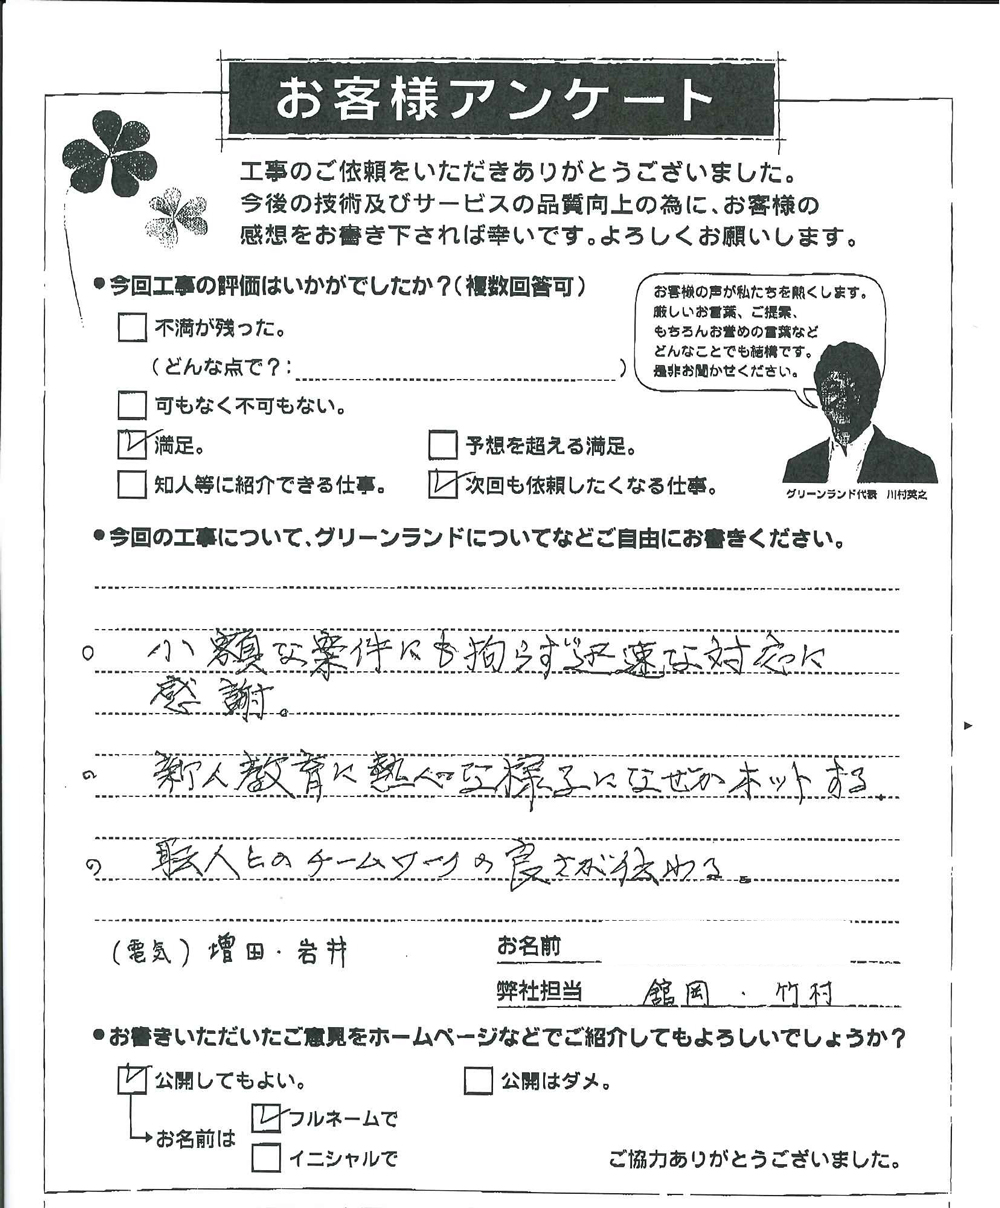 お客様アンケート
工事のご依頼をいただきありがとうございました。
今後の技術及びサービスの品質向上の為に、お客様の
感想をお書き下されば幸いです。よろしくお願いします。
●今回工事の評価はいかがでしたか？（複数回答可）
不満が残った。
（どんな点で？：　）
可もなく不可もない。
満足。
予想を超える満足。
知人等に紹介できる仕事。
次回も依頼したくなる仕事。
お客様の声が私たちを熱くします。
厳しいお言葉、ご提案、
もちろんお誉めの言葉など
どんなことでも結構です。
是非お聞かせください。
グリーンランド代表　川村英之
●今回の工事について、グリーンランドについてなどご自由にお書きください。
○ 小額な案件にも拘らず迅速な対応に
感謝。
○ 新人教育に熱心な様子になぜかホットする。
○ 職人とのチームワークの良さが伝わる。
（電気）増田・岩井
お名前
弊社担当　舘岡・竹村
●お書きいただいたご意見をホームページなどでご紹介してもよろしいでしょうか？
公開してもよい。
公開はダメ。
お名前は
フルネームで
イニシャルで
ご協力ありがとうございました。